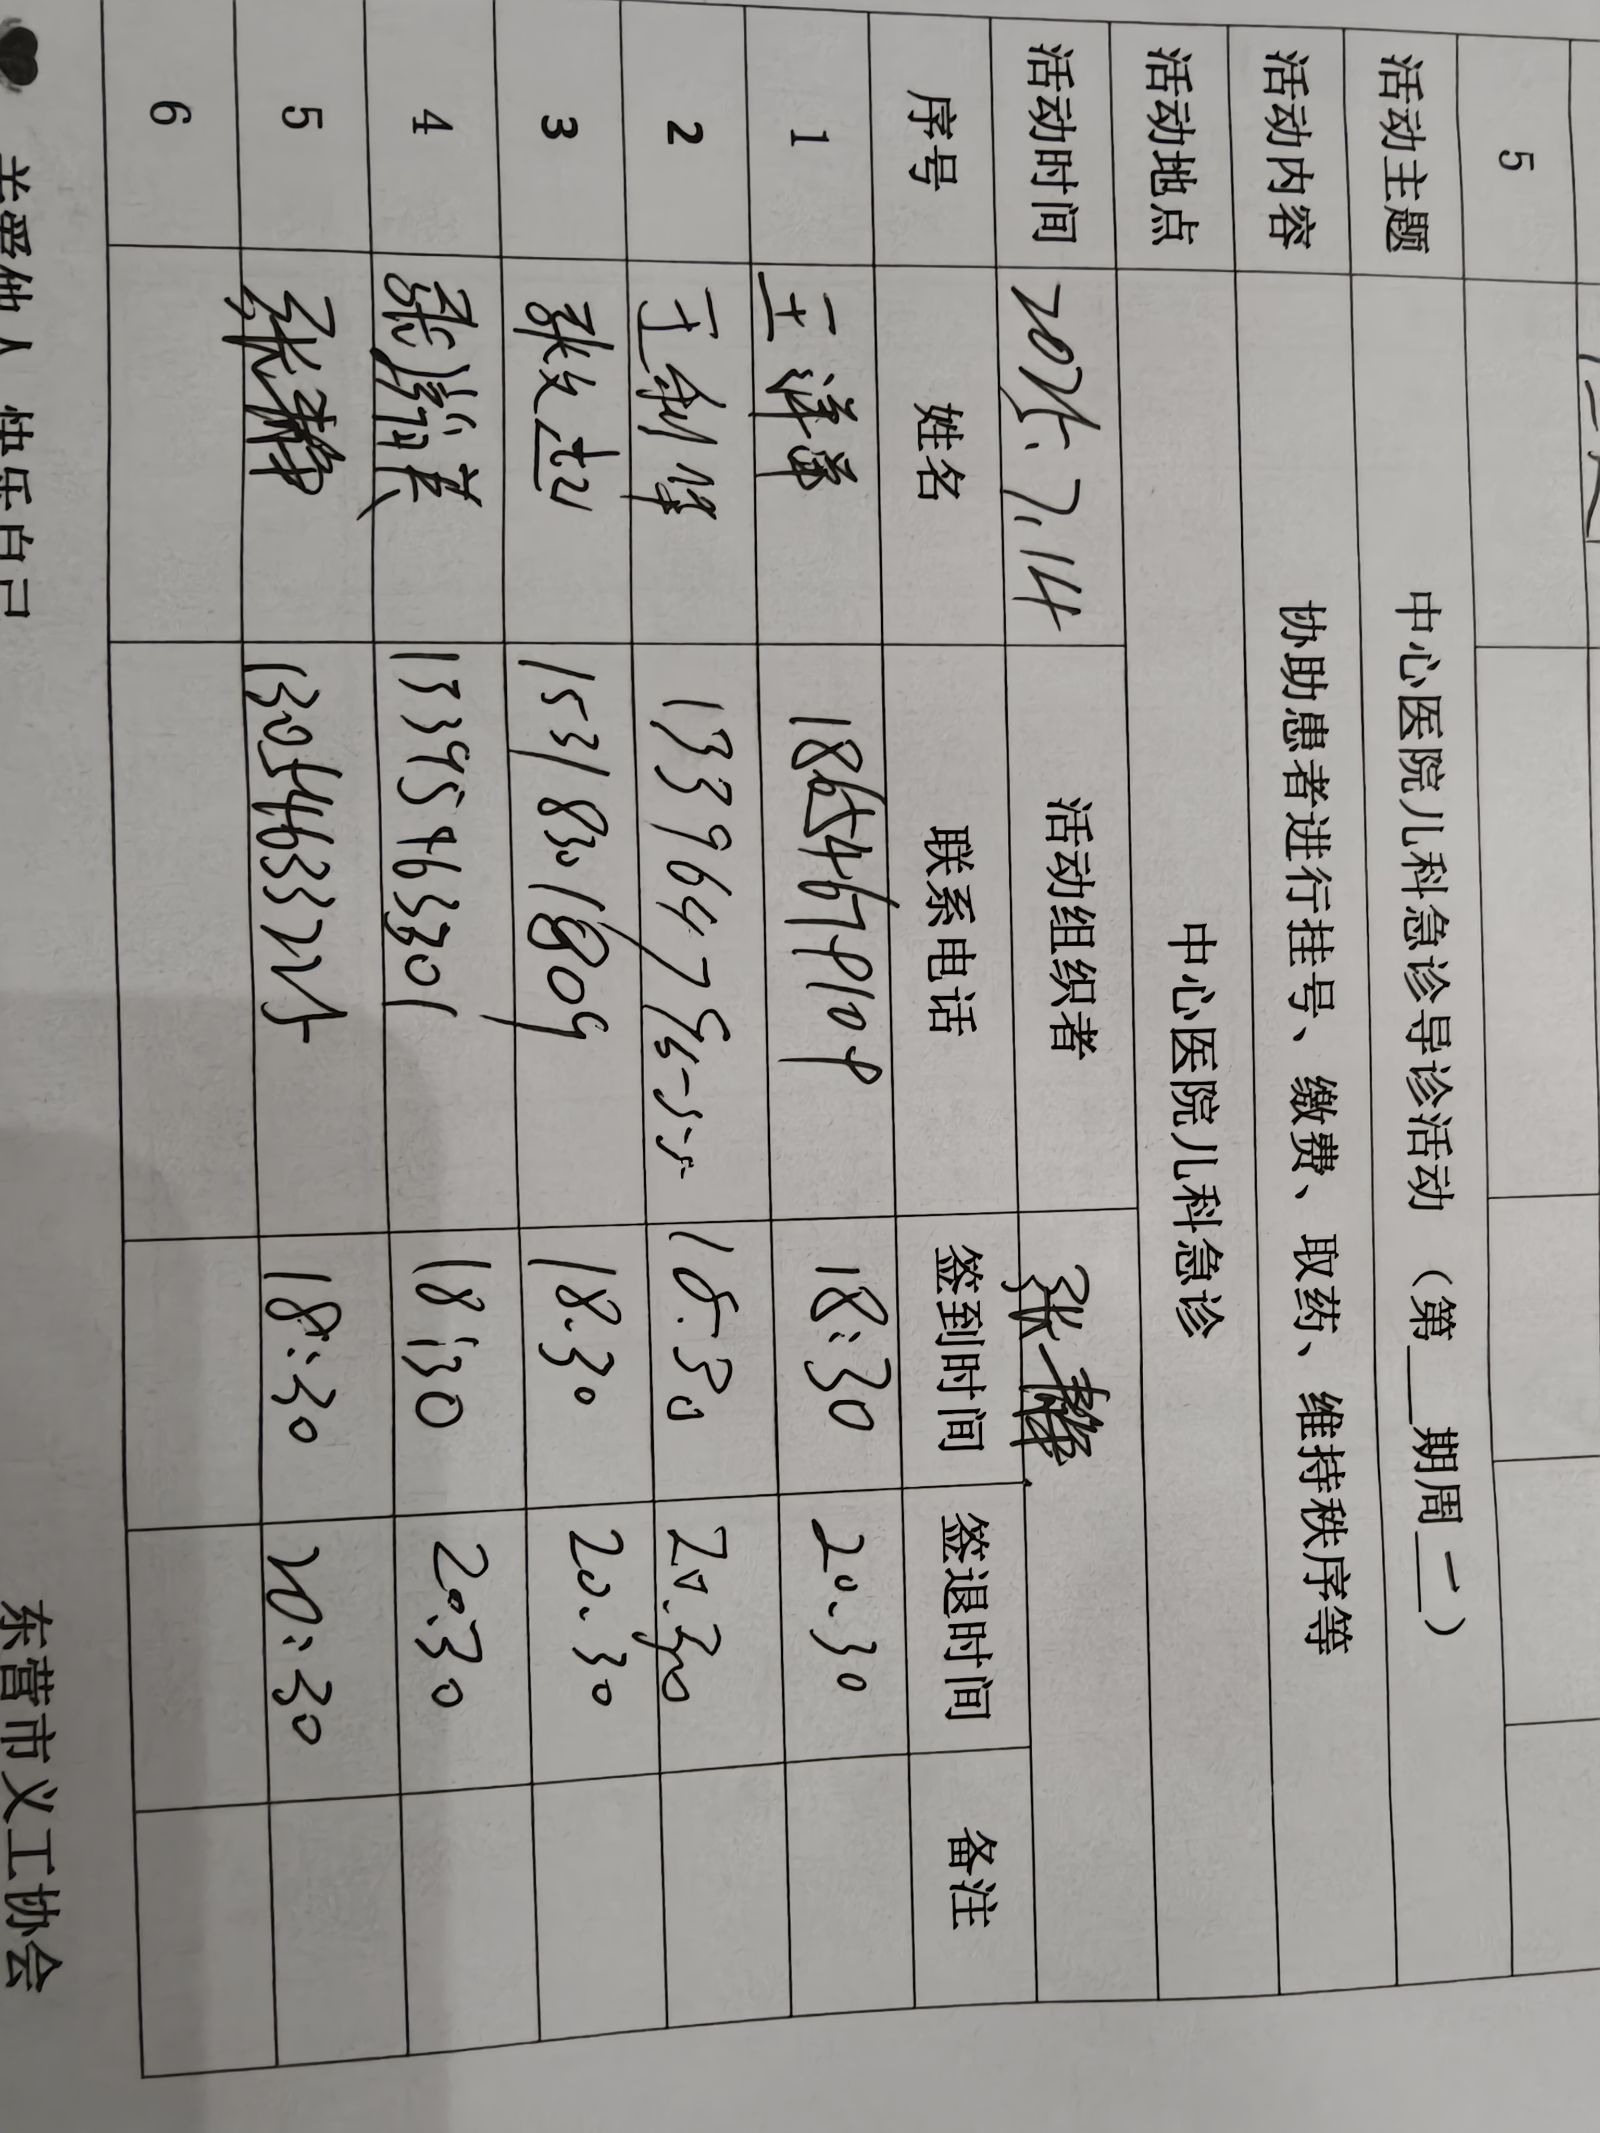 5
活动主题 中心医院儿科急诊导诊活动（第__期周一）
活动内容 协助患者进行挂号、缴费、取药、维持秩序等
活动地点 中心医院儿科急诊
活动时间 2025.7.14 活动组织者 张静
序号 姓名 联系电话 签到时间 签退时间 备注
1 王洋洋 18:30 20:30
2 18:30 20:30
3 15318301809 18:30 20:30
4 13395463301 18:30 20:30
5 张静 18:30 20:30
6
关爱他人 快乐自己 东营市义工协会